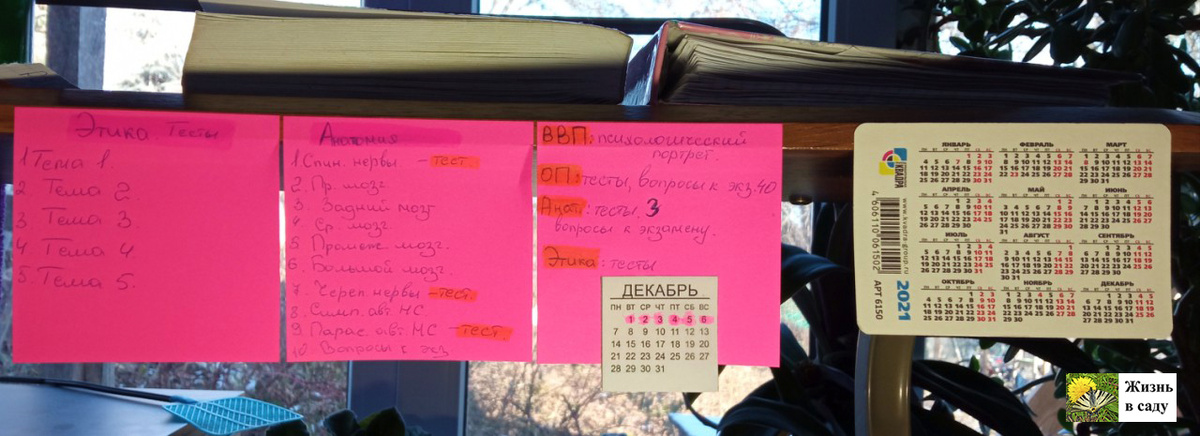 Этика. Тесты
1 Тема 1.
2. Тема 2.
3 Тема 3
4 Тема 4
5. Тема 5.
Анатомия
1. Спин. нервы. – тест.
2. Пр. мозг.
3. Задний мозг
4. Ср. мозг
5. Промеж. мозг.
6. Большой мозг.
7. Череп. нервы – тест.
8. Симп. авт. НС
9. Парас. авт. НС – тест.
10. Вопросы к экз
ВВП: психологический
портрет.
ОП: тесты, вопросы к экз. 40
Анат: тесты, 3
вопросы к экзамену.
Этика: тесты
ДЕКАБРЬ
ПН ВТ СР ЧТ ПТ СБ ВС
1 2 3 4 5 6
7 8 9 10 11 12 13
14 15 16 17 18 19 20
21 22 23 24 25 26 27
28 29 30 31
КВАДРА
www.kvadra-group.ru
4606110061502
АРТ 6150
2021
ЯНВАРЬ
ФЕВРАЛЬ
МАРТ
АПРЕЛЬ
МАЙ
ИЮНЬ
ИЮЛЬ
АВГУСТ
СЕНТЯБРЬ
ОКТЯБРЬ
НОЯБРЬ
ДЕКАБРЬ
Жизнь
в саду